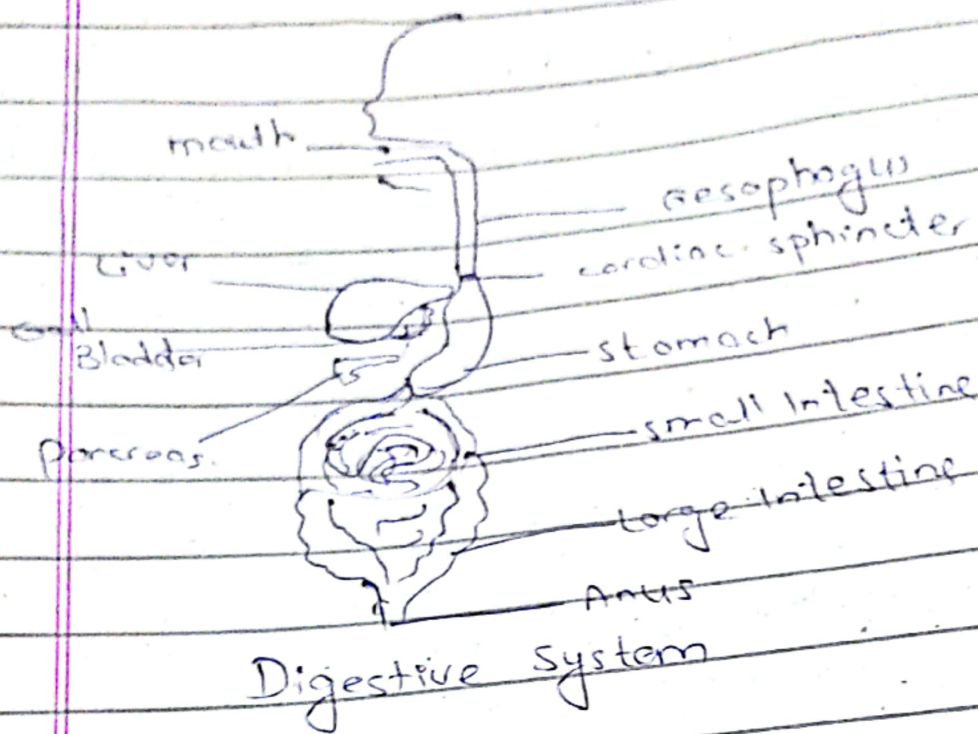 mouth
Oesophogus
cardiac sphincter
Liver
Gall
Bladder
stomach
small Intestine
Pancreas.
Large Intestine
Anus
Digestive System